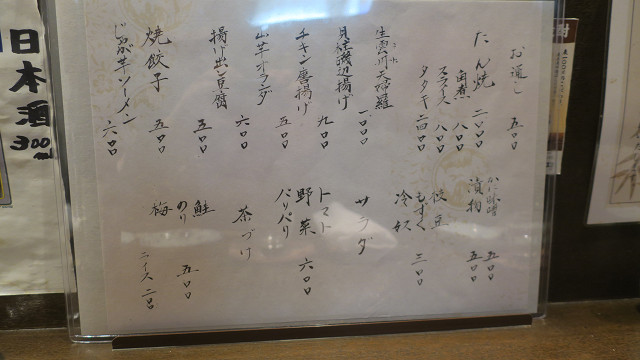 お通し 五〇〇
たん焼 二〇〇〇
角煮 八〇〇
スライス 八〇〇
タタキ 二四〇〇
天婦羅 一〇〇〇
貝柱磯辺揚げ 九〇〇
チキン唐揚げ 五〇〇
山芋オランダ 六〇〇
揚げ出し豆腐 五〇〇
焼餃子 五〇〇
じゃが芋ソーメン 六〇〇
五〇〇
漬物 五〇〇
枝豆
もずく 三〇〇
冷奴
サラダ
トマト
野菜 六〇〇
パリパリ
茶づけ
鮭
のり 五〇〇
梅
ライス 二〇〇
日本酒
300ml